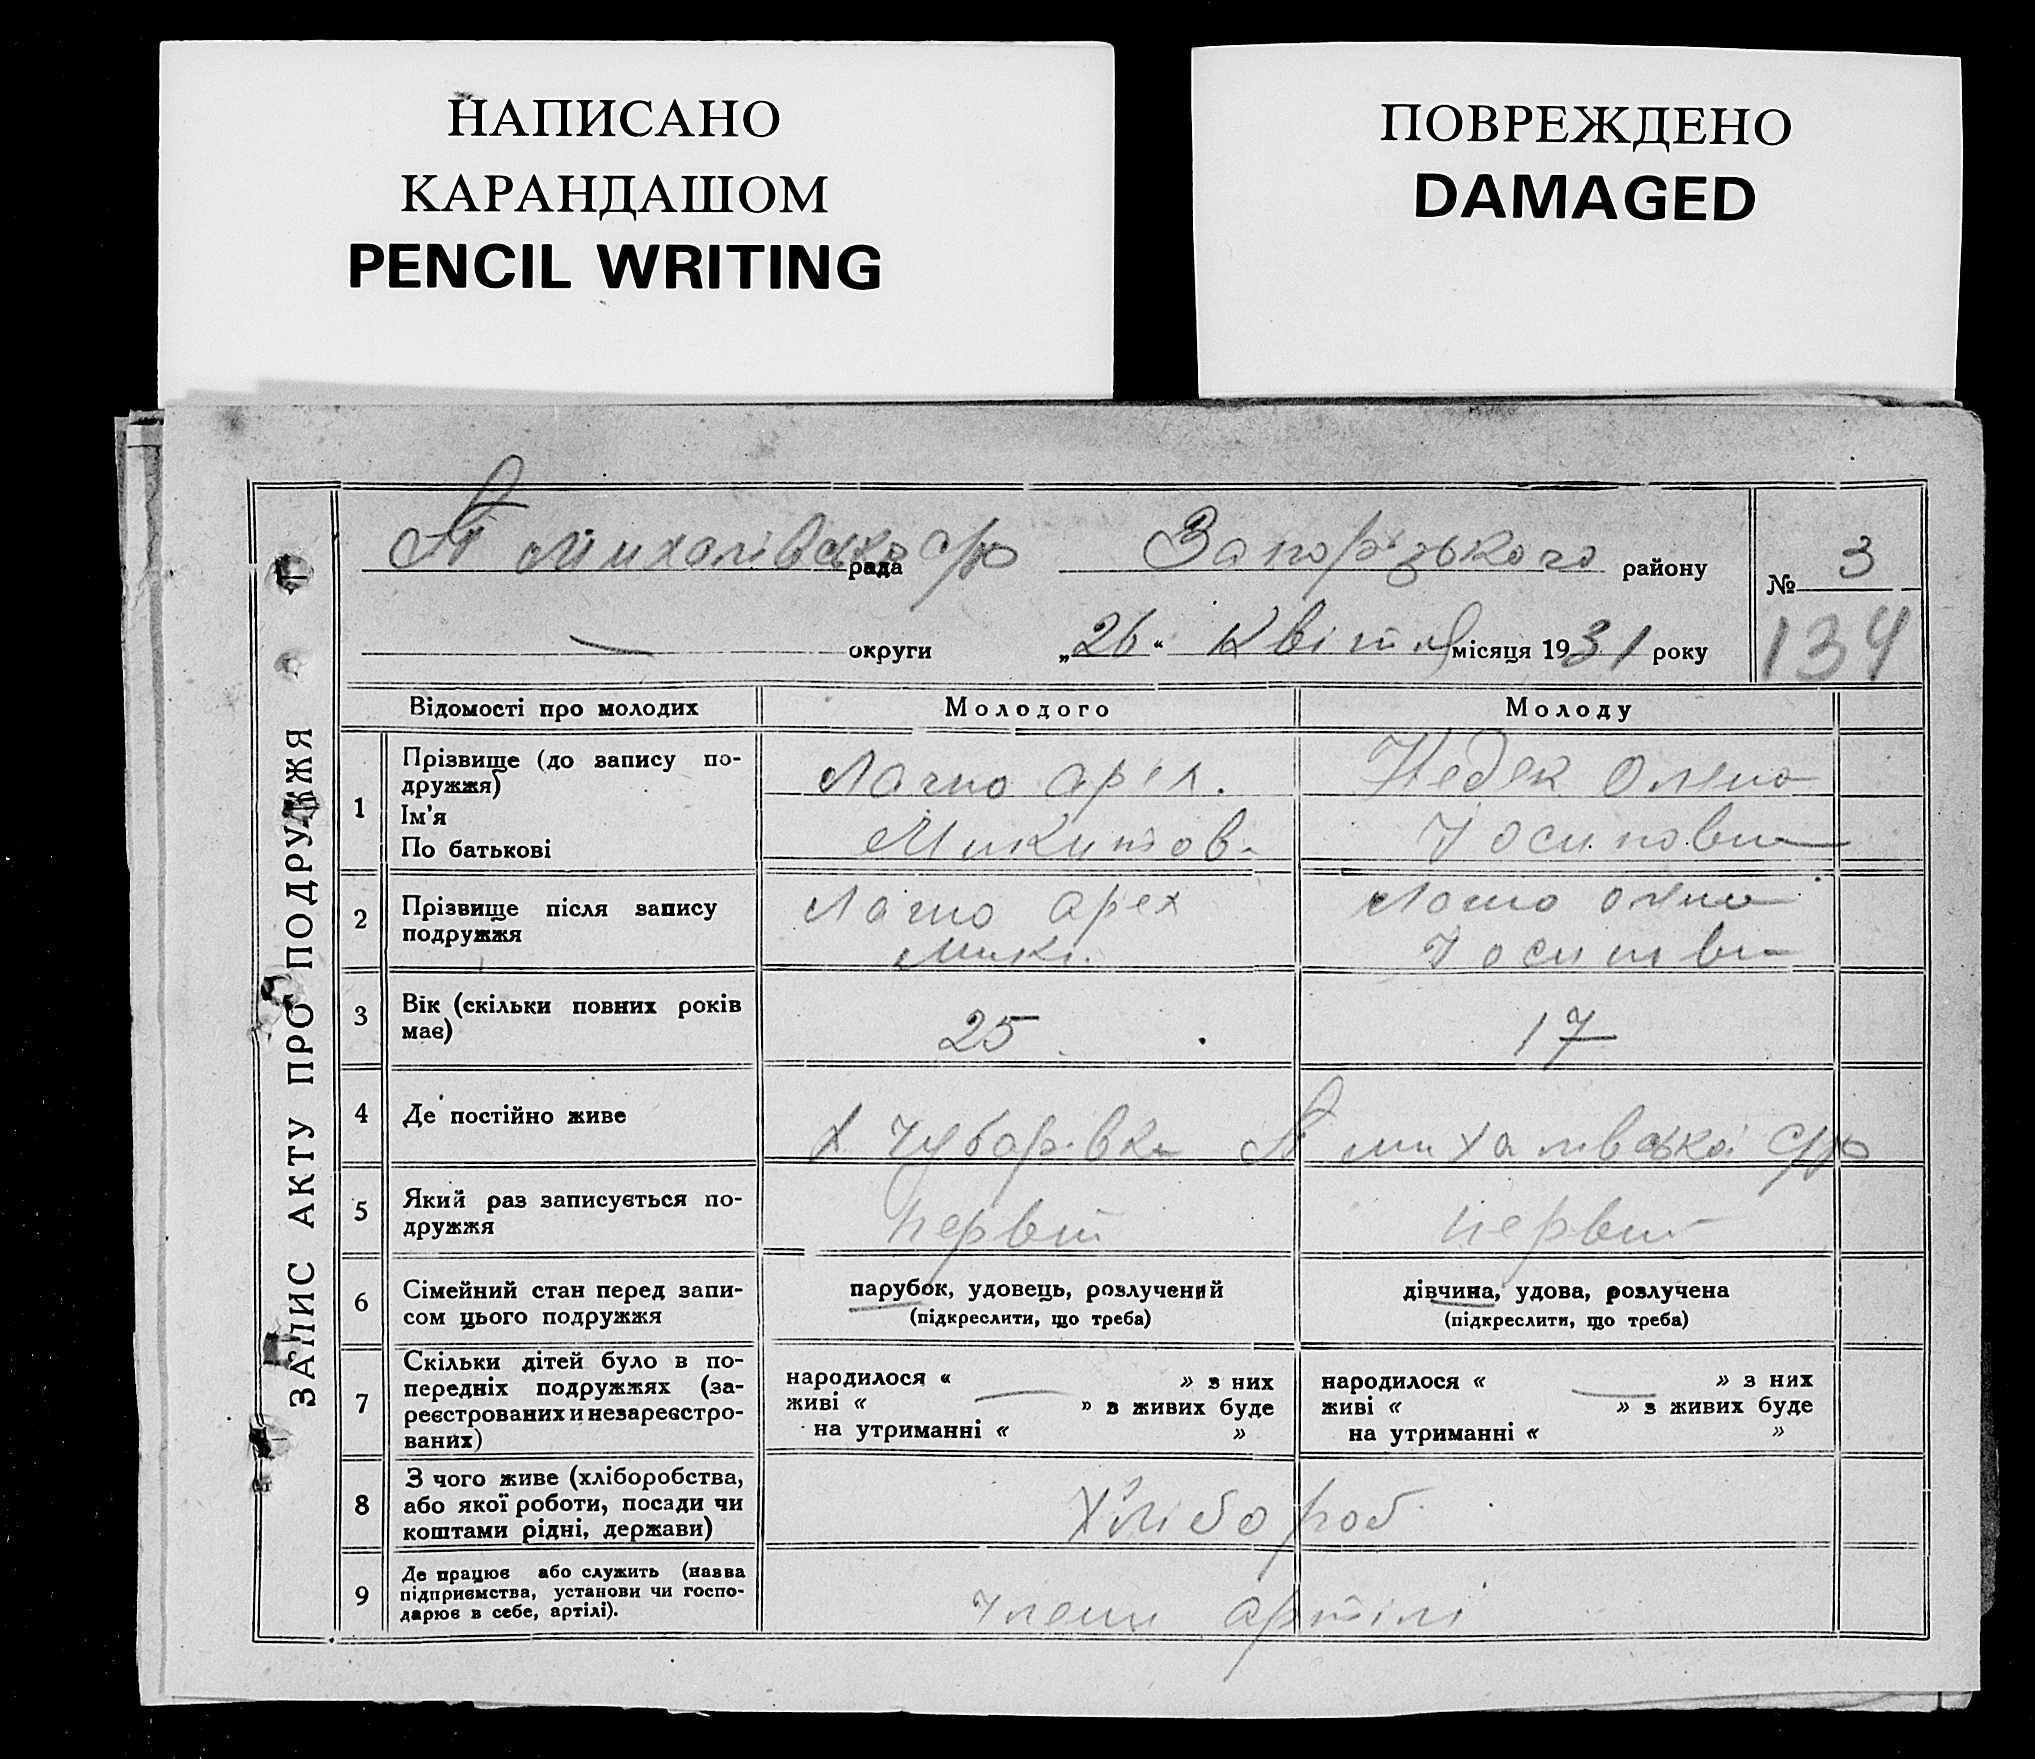 НАПИСАНО
КАРАНДАШОМ
PENCIL WRITING
ПОВРЕЖДЕНО
DAMAGED
ЗАПИС АКТУ ПРО ПОДРУЖЖЯ
рада Запорізького району
№ 3
округи „26“ Квітня місяця 1931 року
134
Відомості про молодих Молодого Молоду
1
Прізвище (до запису по-
дружжя)
Ім'я
По батькові
Олена
Микитов.
2
Прізвище після запису
подружжя
Мики.
3
Вік (скільки повних років
має)
25
17
4
Де постійно живе
х Чубарівка
5
Який раз записується по-
дружжя
первий
первий
6
Сімейний стан перед запи-
сом цього подружжя
парубок, удовець, розлучений
(підкреслити, що треба)
дівчина, удова, розлучена
(підкреслити, що треба)
7
Скільки дітей було в по-
передніх подружжях (за-
реєстрованих и незареєстро-
ваних)
народилося « » з них
живі « » з живих буде
на утриманні « »
народилося « » з них
живі « » з живих буде
на утриманні « »
8
З чого живе (хліборобства,
або якої роботи, посади чи
коштами рідні, держави)
Хлібороб
9
Де працює або служить (назва
підприємства, установи чи госпо-
дарює в себе, артілі).
члени артілі